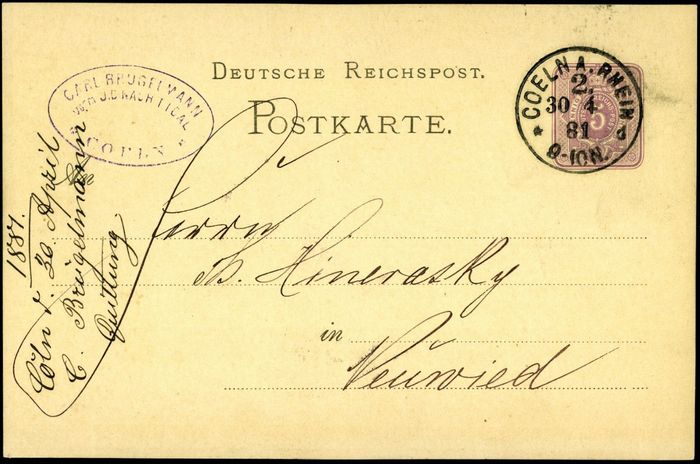 DEUTSCHE REICHSPOST.
POSTKARTE.
CARL BRÜGELMANN
COELN
COELN A. RHEIN
2.
30 4
81
9-10N.
d
An
Herrn
Th. Hinerasky
in
Neuwied
1881.
Cöln d. 30 April
C. Brügelmann
Quittung